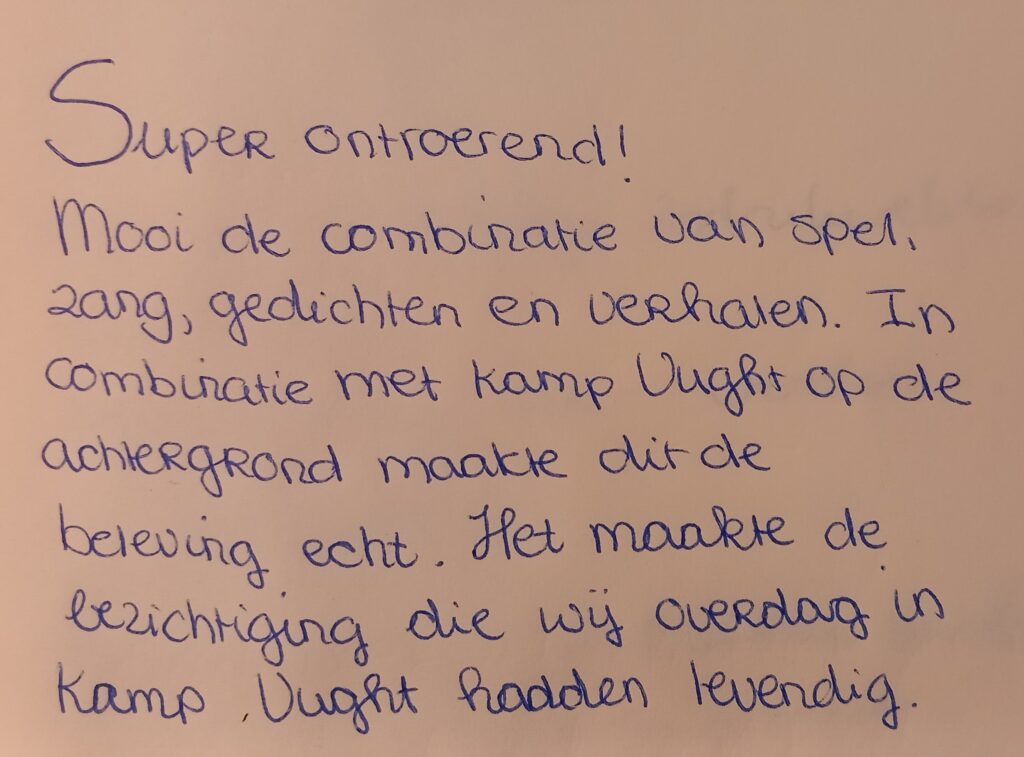 Super ontroerend!
Mooi de combinatie van spel,
zang, gedichten en verhalen. In
combinatie met kamp Vught op de
achtergrond maakte dit de
beleving echt. Het maakte de
bezichtiging die wij overdag in
Kamp Vught hadden levendig.